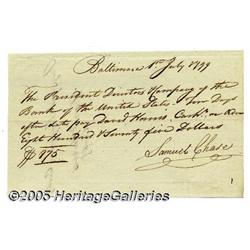 Baltimore 1st July 1799
The President Directors & Company of the
Bank of the United States, Ten Days
after date pay David Harris Cashr. or
Eight Hundred & Seventy five Dollars
$875
Samuel Chase
©2005 HeritageGalleries